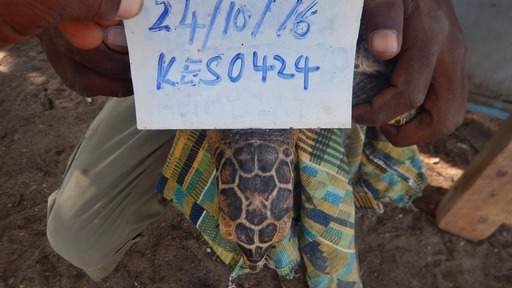 24/10/16
KES0424